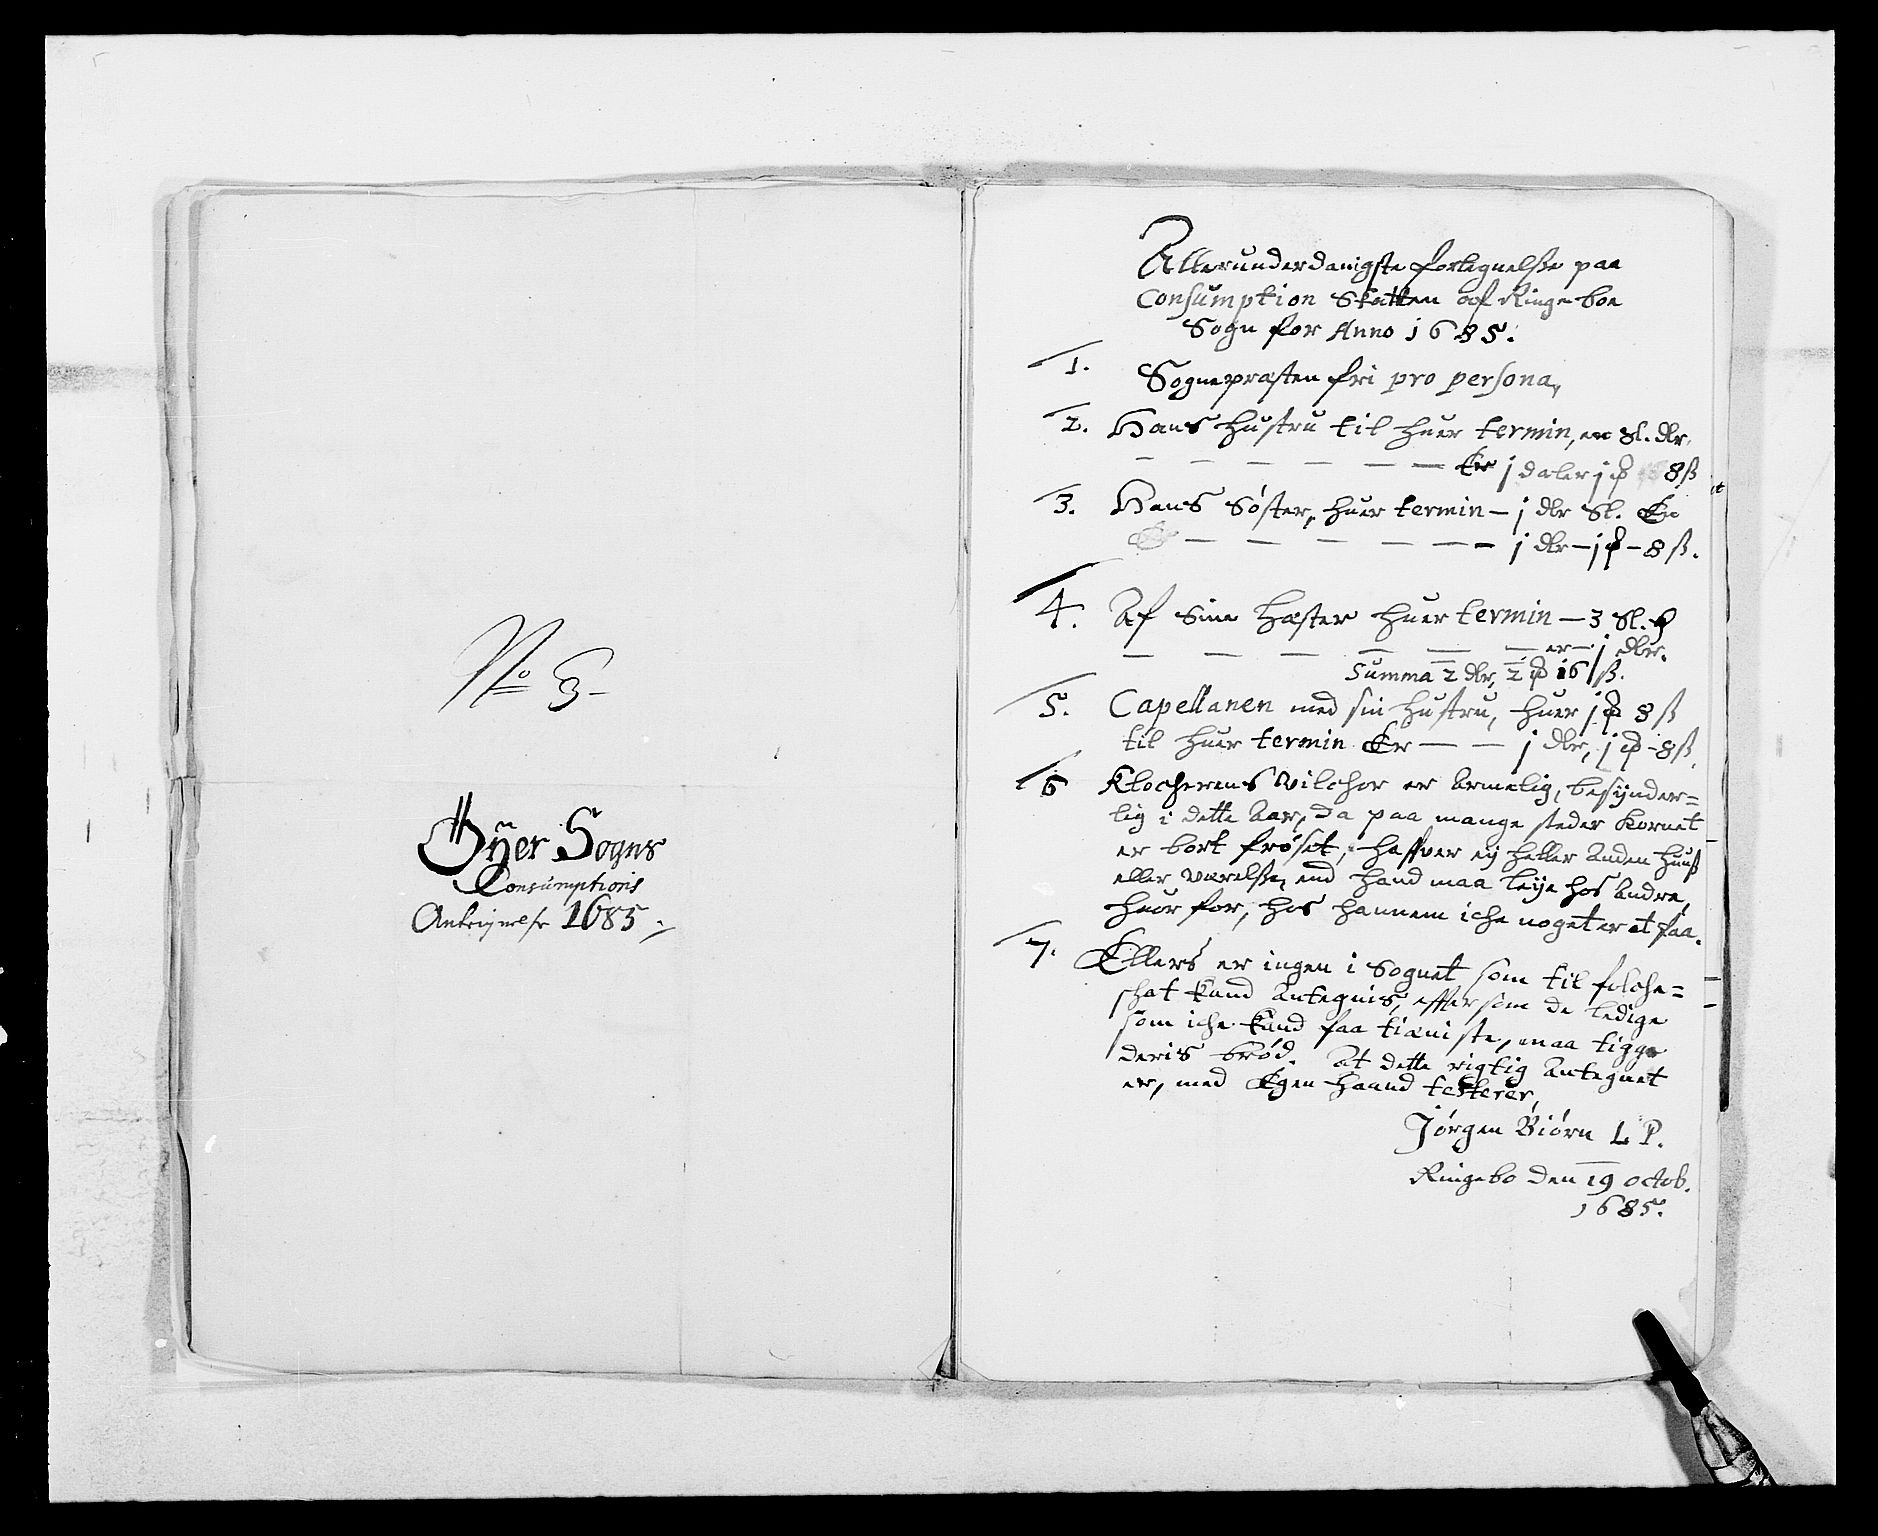 No 3
Öÿer Sogns
Consumptions
Anteignelse 1685
Allerunderdanigste fortegnelße paa
Consumption Skatten af Ringeboe
Sogn for Anno 1685.
1. Sognepræsten fri pro persona,
2. Hans hustru til huer termin, en Sl. dlr.
Er j daler j 8 ß
3. Hans Søster, huer termin – j dlr Sl. Er
j dlr – j – 8 ß.
4. Af Sine Hæster huer termin – 3 Sl.
er – j dlr.
Summa 2 dlr, 2 16 ß.
5. Capellanen med sin hustru, huer j 8 ß
til huer termin Er – – j dlr, j – 8 ß
6 Klocherens Vilchor er Armelig, besÿnder=
lig i dette Aar, da paa mange steder Kornet
er bort frøset, haffver eÿ heller Anden huuß
eller værelße, end hand maa leÿe hos Andre,
huor for, hos hannem iche noget er at faa.
7. Ellers er ingen i Sognet som til folche=
schat kand Antegnis, effter som de ledige
som iche kand faa tiæniste, maa tigge
deris brød. At dette rigtig Antegnet
er, med Egen haand testerer,
Jørgen Biørn L P.
Ringebo den 19 octob.
1685.